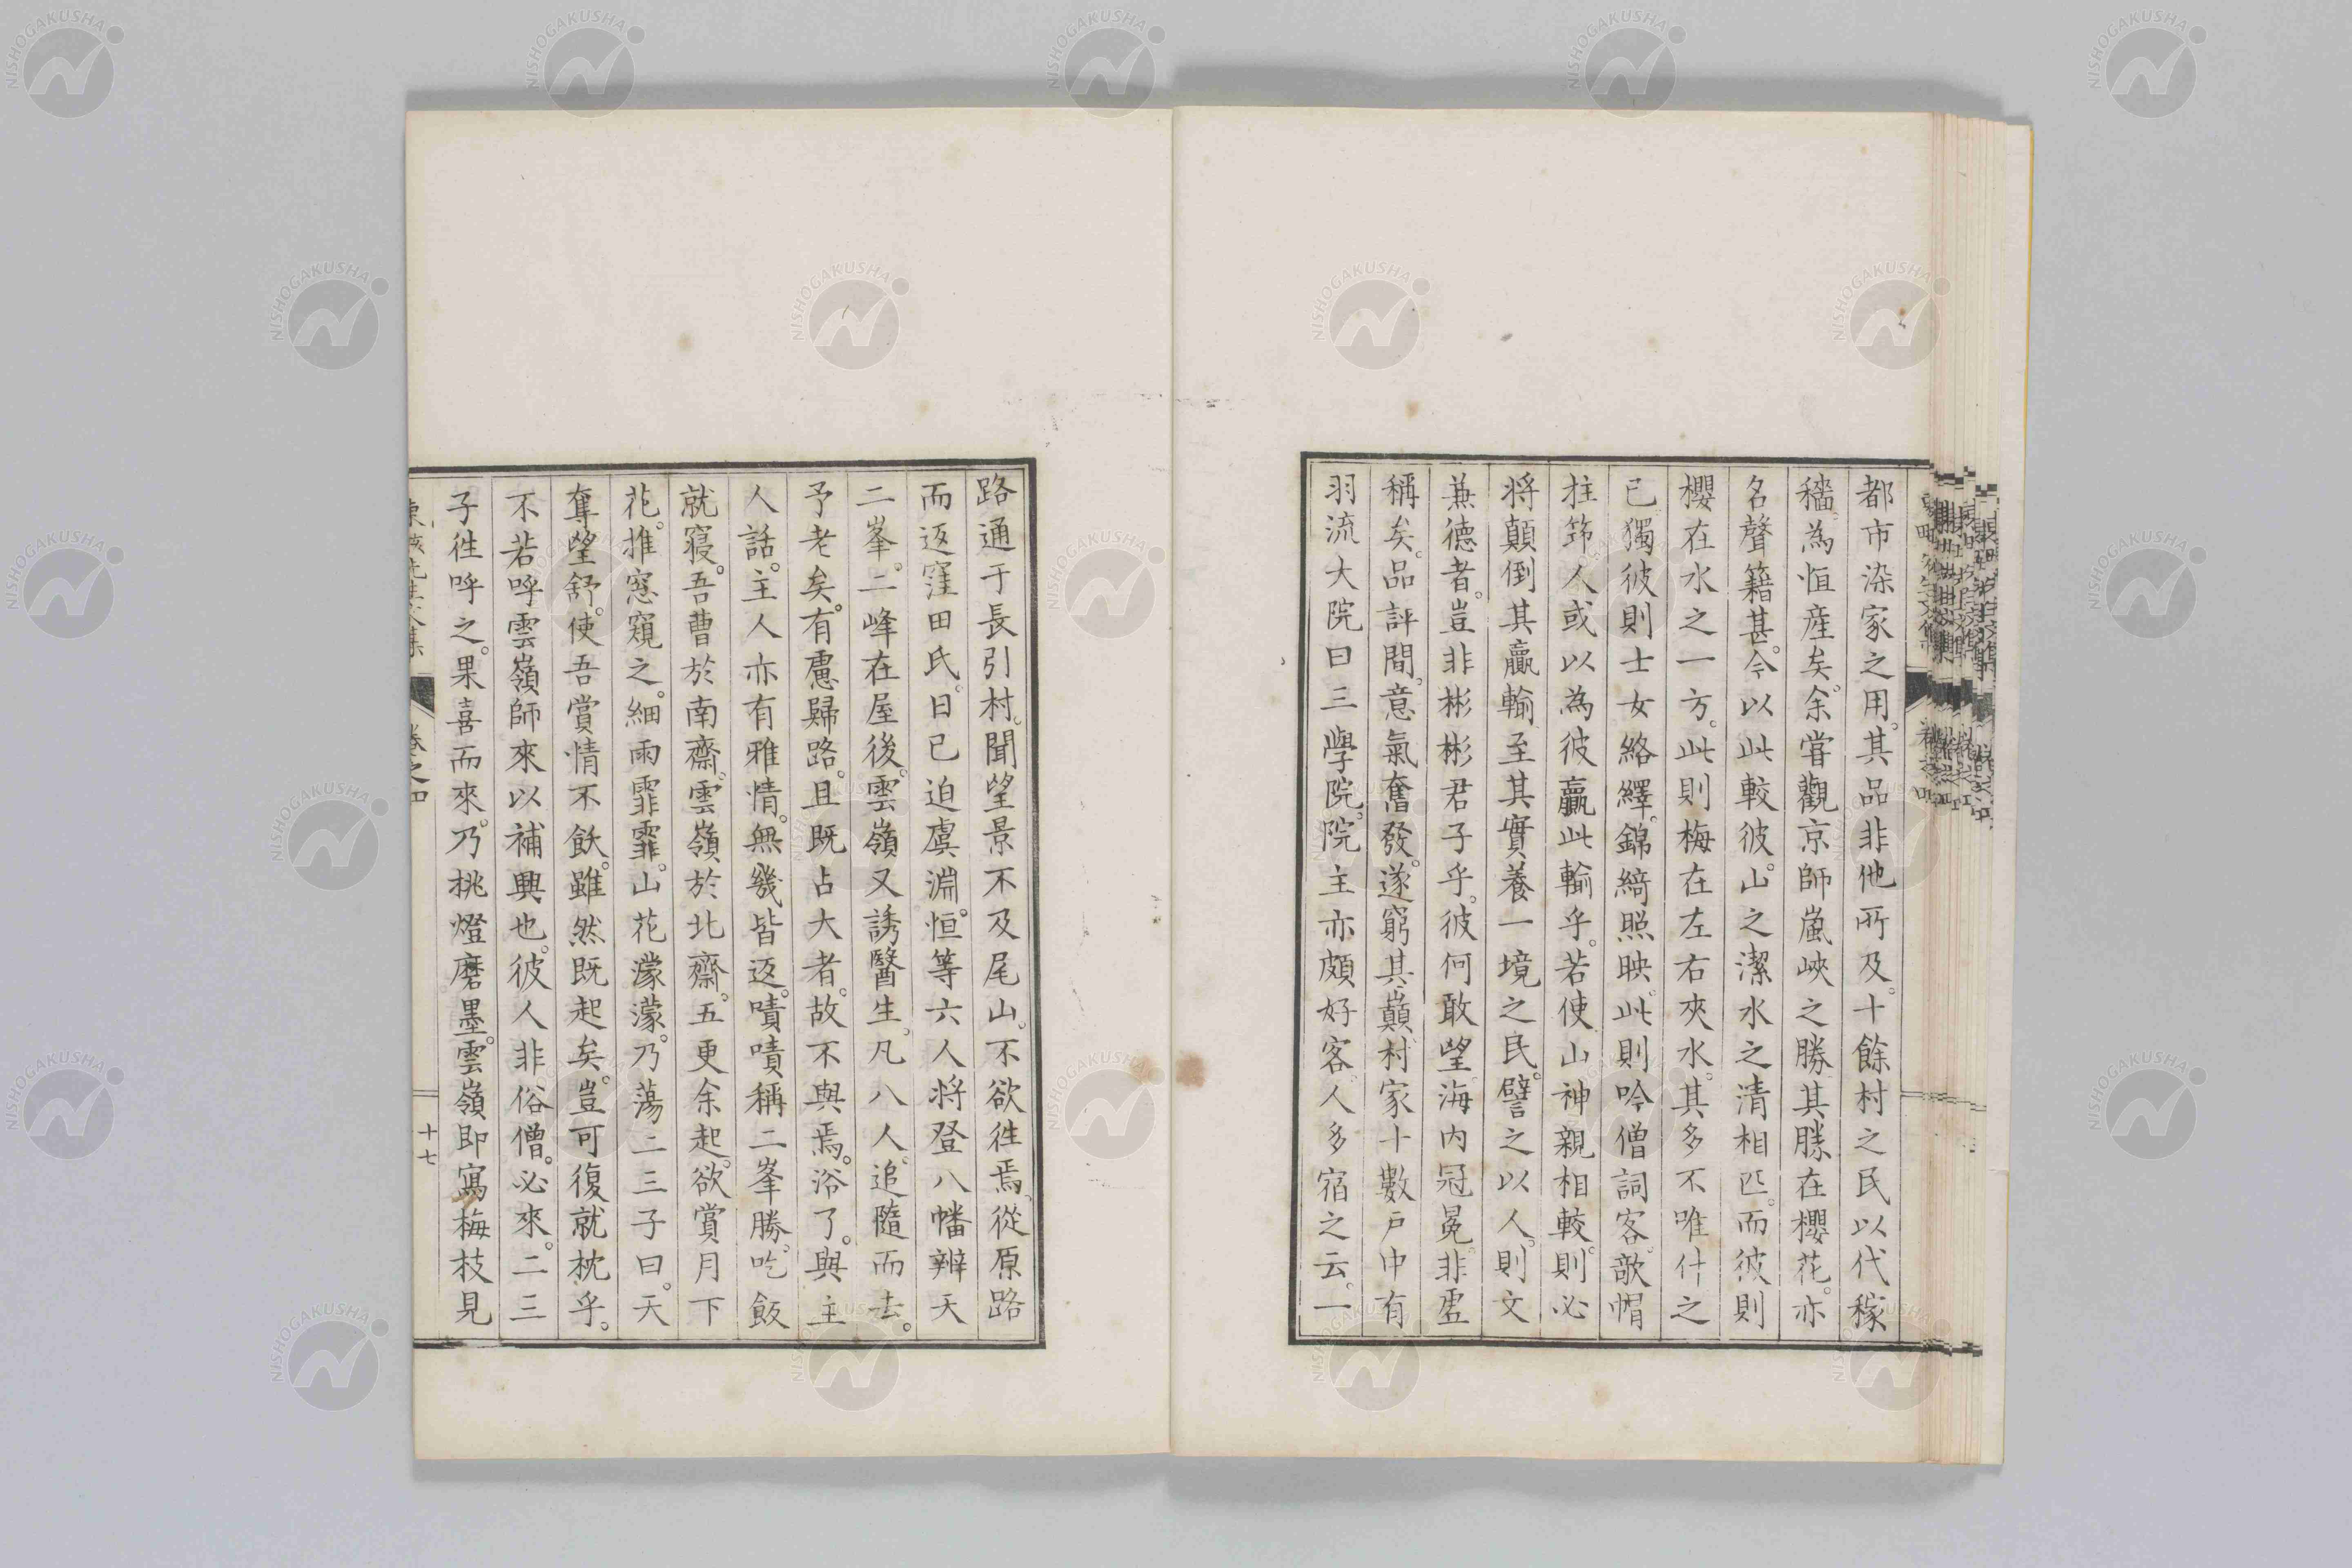 都市染家之用。其品非他所及。十餘村之民以代稼
穡為恒産矣。余嘗觀京師嵐峽之勝其勝在櫻花。亦
名聲籍甚。今以此較彼。山之潔水之清相匹。而彼則
櫻在水之一方。此則梅在左右夾水。其多不唯什之
已獨彼則士女絡繹。錦綺照映。此則吟僧詞客。歌帽
拄筇人或以為彼贏此輸乎。若使山神親相較。則必
將顛倒其贏輸。至其實養一境之民。譬之以人。則文
兼德者。豈非彬彬君子乎。彼何敢望海内冠冕非虛
稱矣。品評間。意氣奮發。遂窮其巔村家十數戶中有
羽流大院曰三學院。院主亦頗好客。人多宿之云。一
路通于長引村。聞望景不及尾山。不欲往焉。從原路
而返窪田氏。日已迫虞淵。恒等六人將登八幡辨天
二峯。二峰在屋後。雲嶺又誘醫生。凡八人。追隨而去。
予老矣。有慮歸路。且既占大者。故不與焉。浴了。與主
人話。主人亦有雅情。無幾皆返。嘖嘖稱二峯勝。吃飯
就寢。吾曹於南齋。雲嶺於北齋。五更余起。欲賞月下
花。推窓窺之。細雨霏霏。山花濛濛。乃蕩二三子曰。天
奪望舒。使吾賞情不飫。雖然既起矣。豈可復就枕乎。
不若呼雲嶺師來以補興也。彼人非俗僧。必來。二三
子往呼之。果喜而來。乃挑燈磨墨。雲嶺即寫梅枝見
卷之四
十七
NISHOGAKUSHA